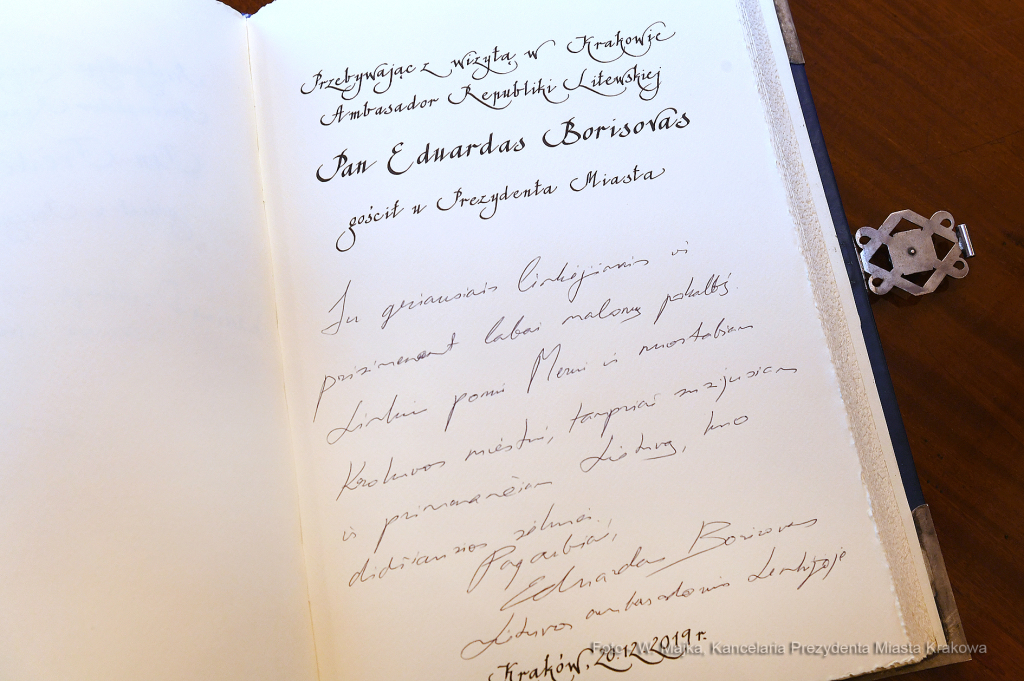 Przebywając z wizytą w Krakowie
Ambasador Republiki Litewskiej
Pan Eduardas Borisovas
gościł u Prezydenta Miasta
Su geriausiais linkėjimais ir
prisimenant labai malonų pokalbį.
Linkiu ponui Merui ir nuostabiam
Krokuvos miestui, tampriai susijusiam
ir primenančiam Lietuvą, kuo
didžiausios sėkmės.
Pagarbiai,
Eduardas Borisovas
Lietuvos ambasadorius Lenkijoje
Kraków, 20.12.2019 r.
Foto: W. Majka, Kancelaria Prezydenta Miasta Krakowa